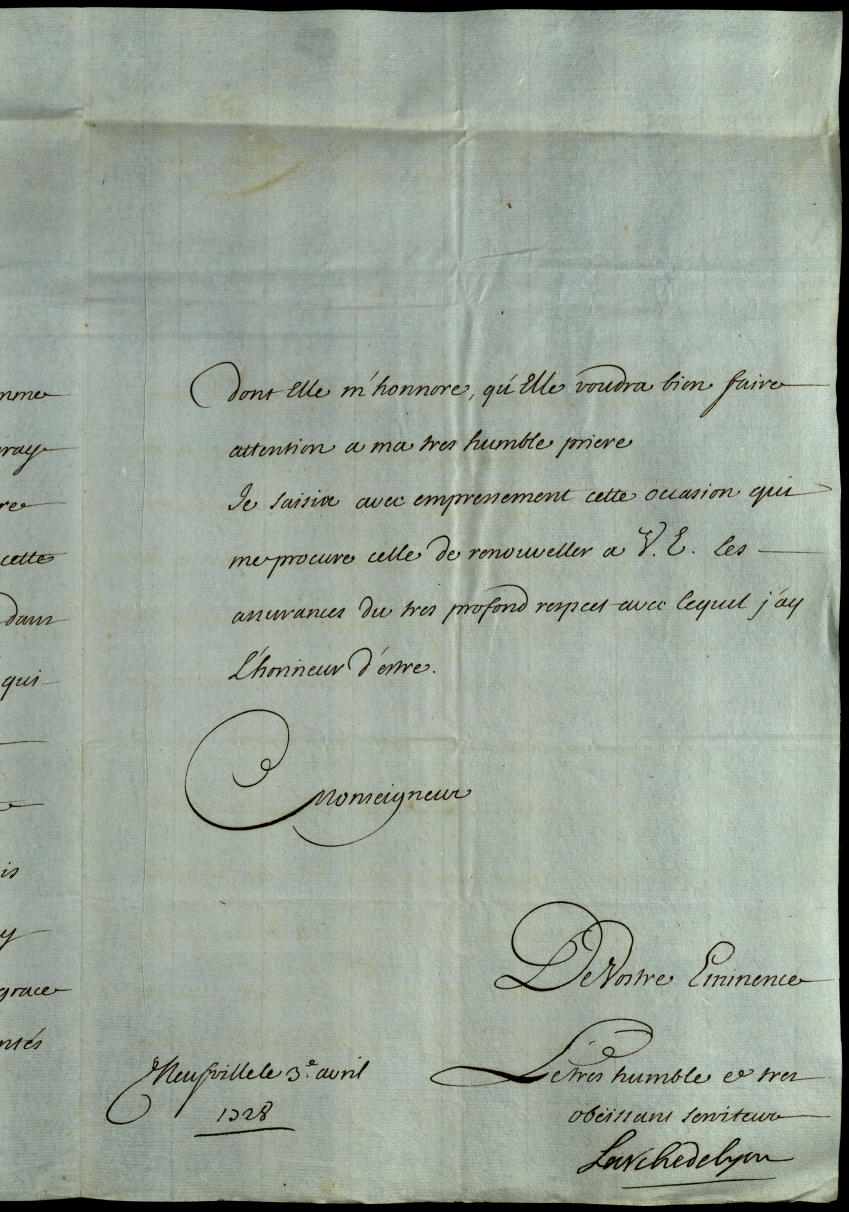 mme
vray
re
cette
dans
qui
is
y
grace
ntés
dont Elle m'honnore, qu'Elle voudra bien faire
attention a ma tres humble priere
Je saisis avec empressement cette occasion qui
me procure celle de renouveller a V. E. les
assurances du tres profond respect avec lequel j'ay
L'honneur d'estre.
Monseigneur
De Vostre Eminence
Neufville le 3.e avril
1728
Le tres humble et tres
obeissant serviteur
L'archedelyon